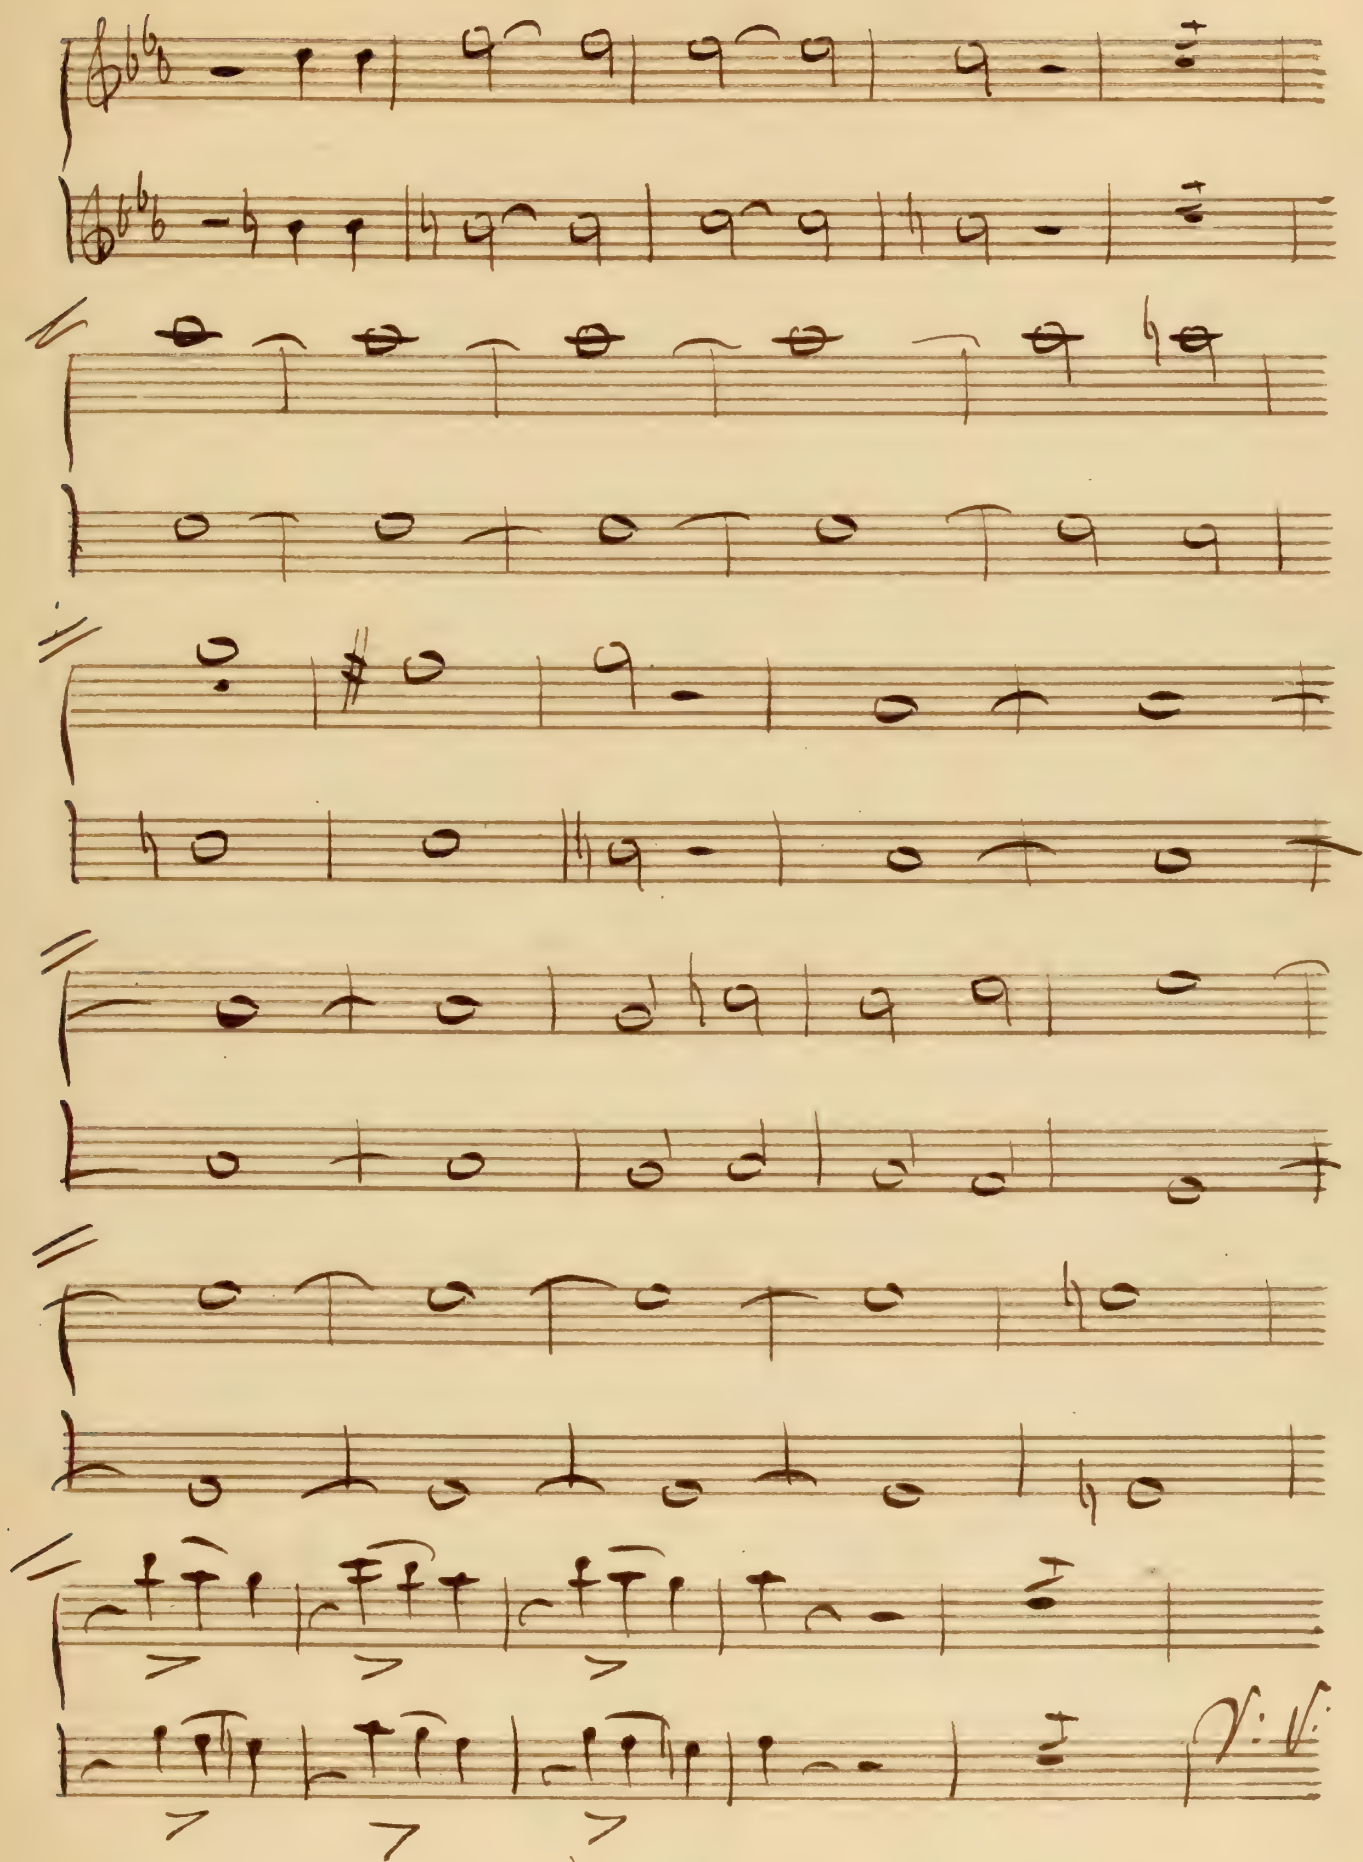 V: V: